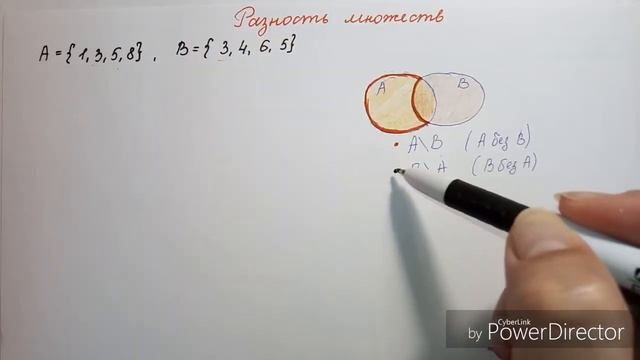 Разность множеств
A = {1, 3, 5, 8} , B = {3, 4, 6, 5}
A B
• A \ B (A без B)
• B \ A (B без A)
CyberLink
by PowerDirector